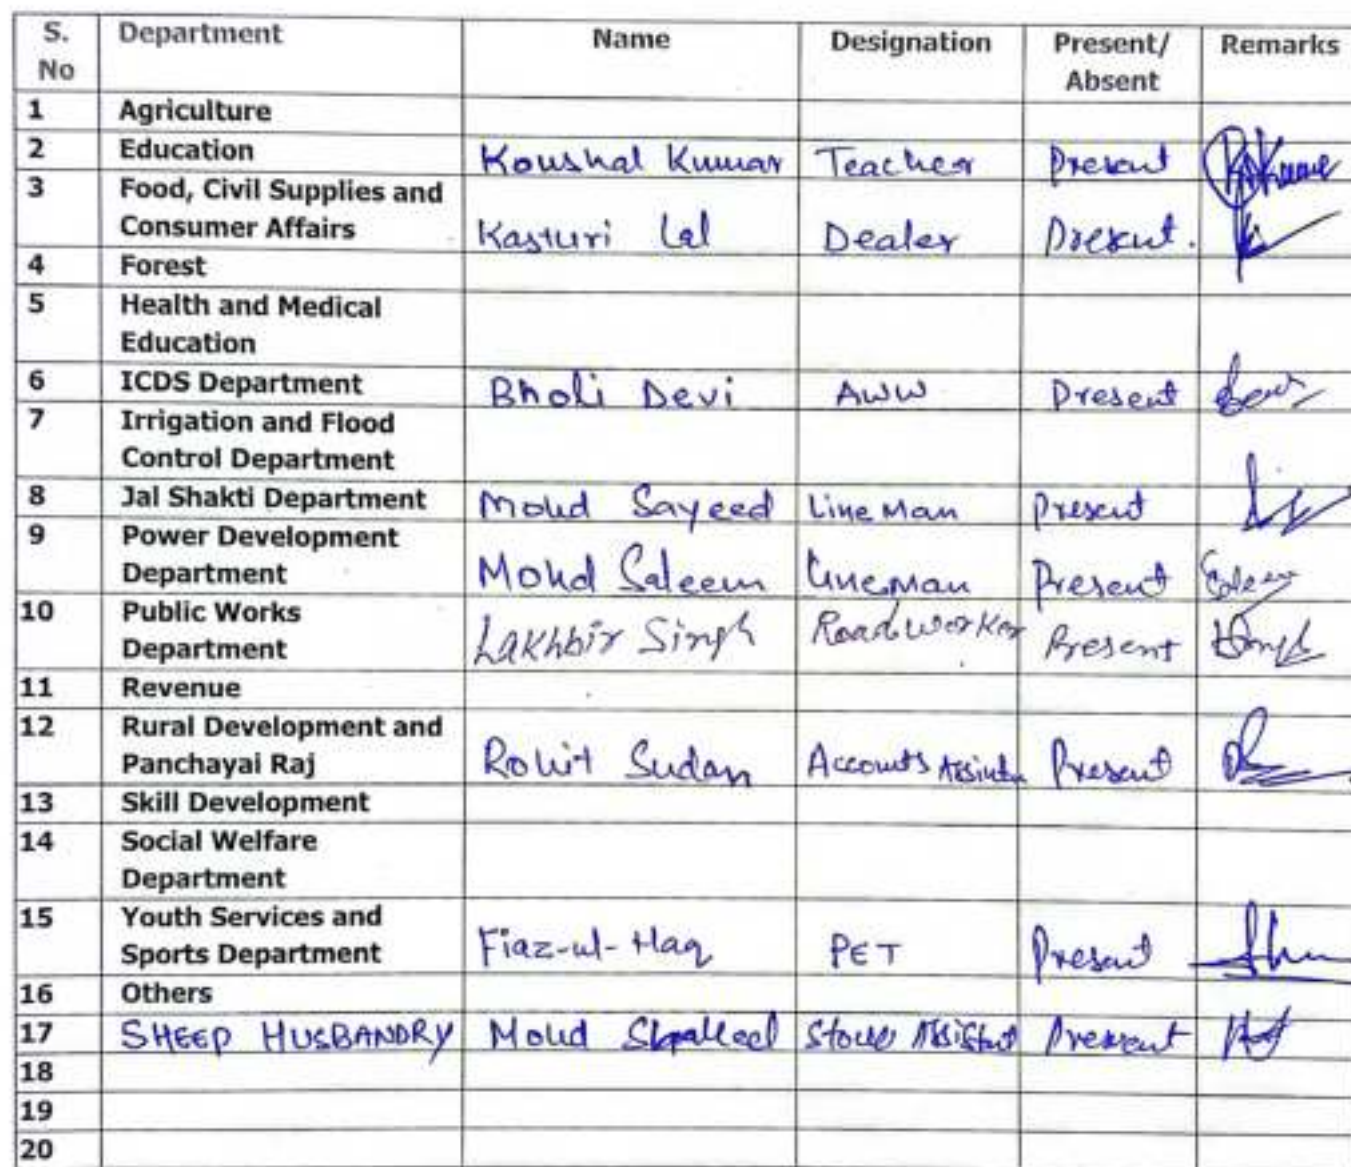 S. No Department Name Designation Present/ Absent Remarks
1 Agriculture
2 Education Koushal Kumar Teacher Present
3 Food, Civil Supplies and
Consumer Affairs Kasturi Lal Dealer Present.
4 Forest
5 Health and Medical
Education
6 ICDS Department Bholi Devi AWW Present
7 Irrigation and Flood
Control Department
8 Jal Shakti Department Mohd Sayeed Line Man Present
9 Power Development
Department Mohd Saleem Lineman Present
10 Public Works
Department Lakhbir Singh Road worker Present
11 Revenue
12 Rural Development and
Panchayai Raj Rohit Sudan Accounts Present
13 Skill Development
14 Social Welfare
Department
15 Youth Services and
Sports Department Fiaz-ul-Haq PET Present
16 Others
17 SHEEP HUSBANDRY Mohd Assistant Present
18
19
20